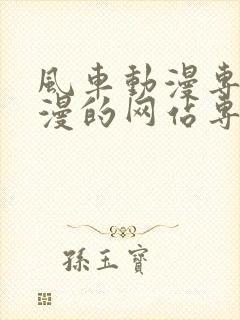 風車動漫專
漫的网站專
孫玉寶